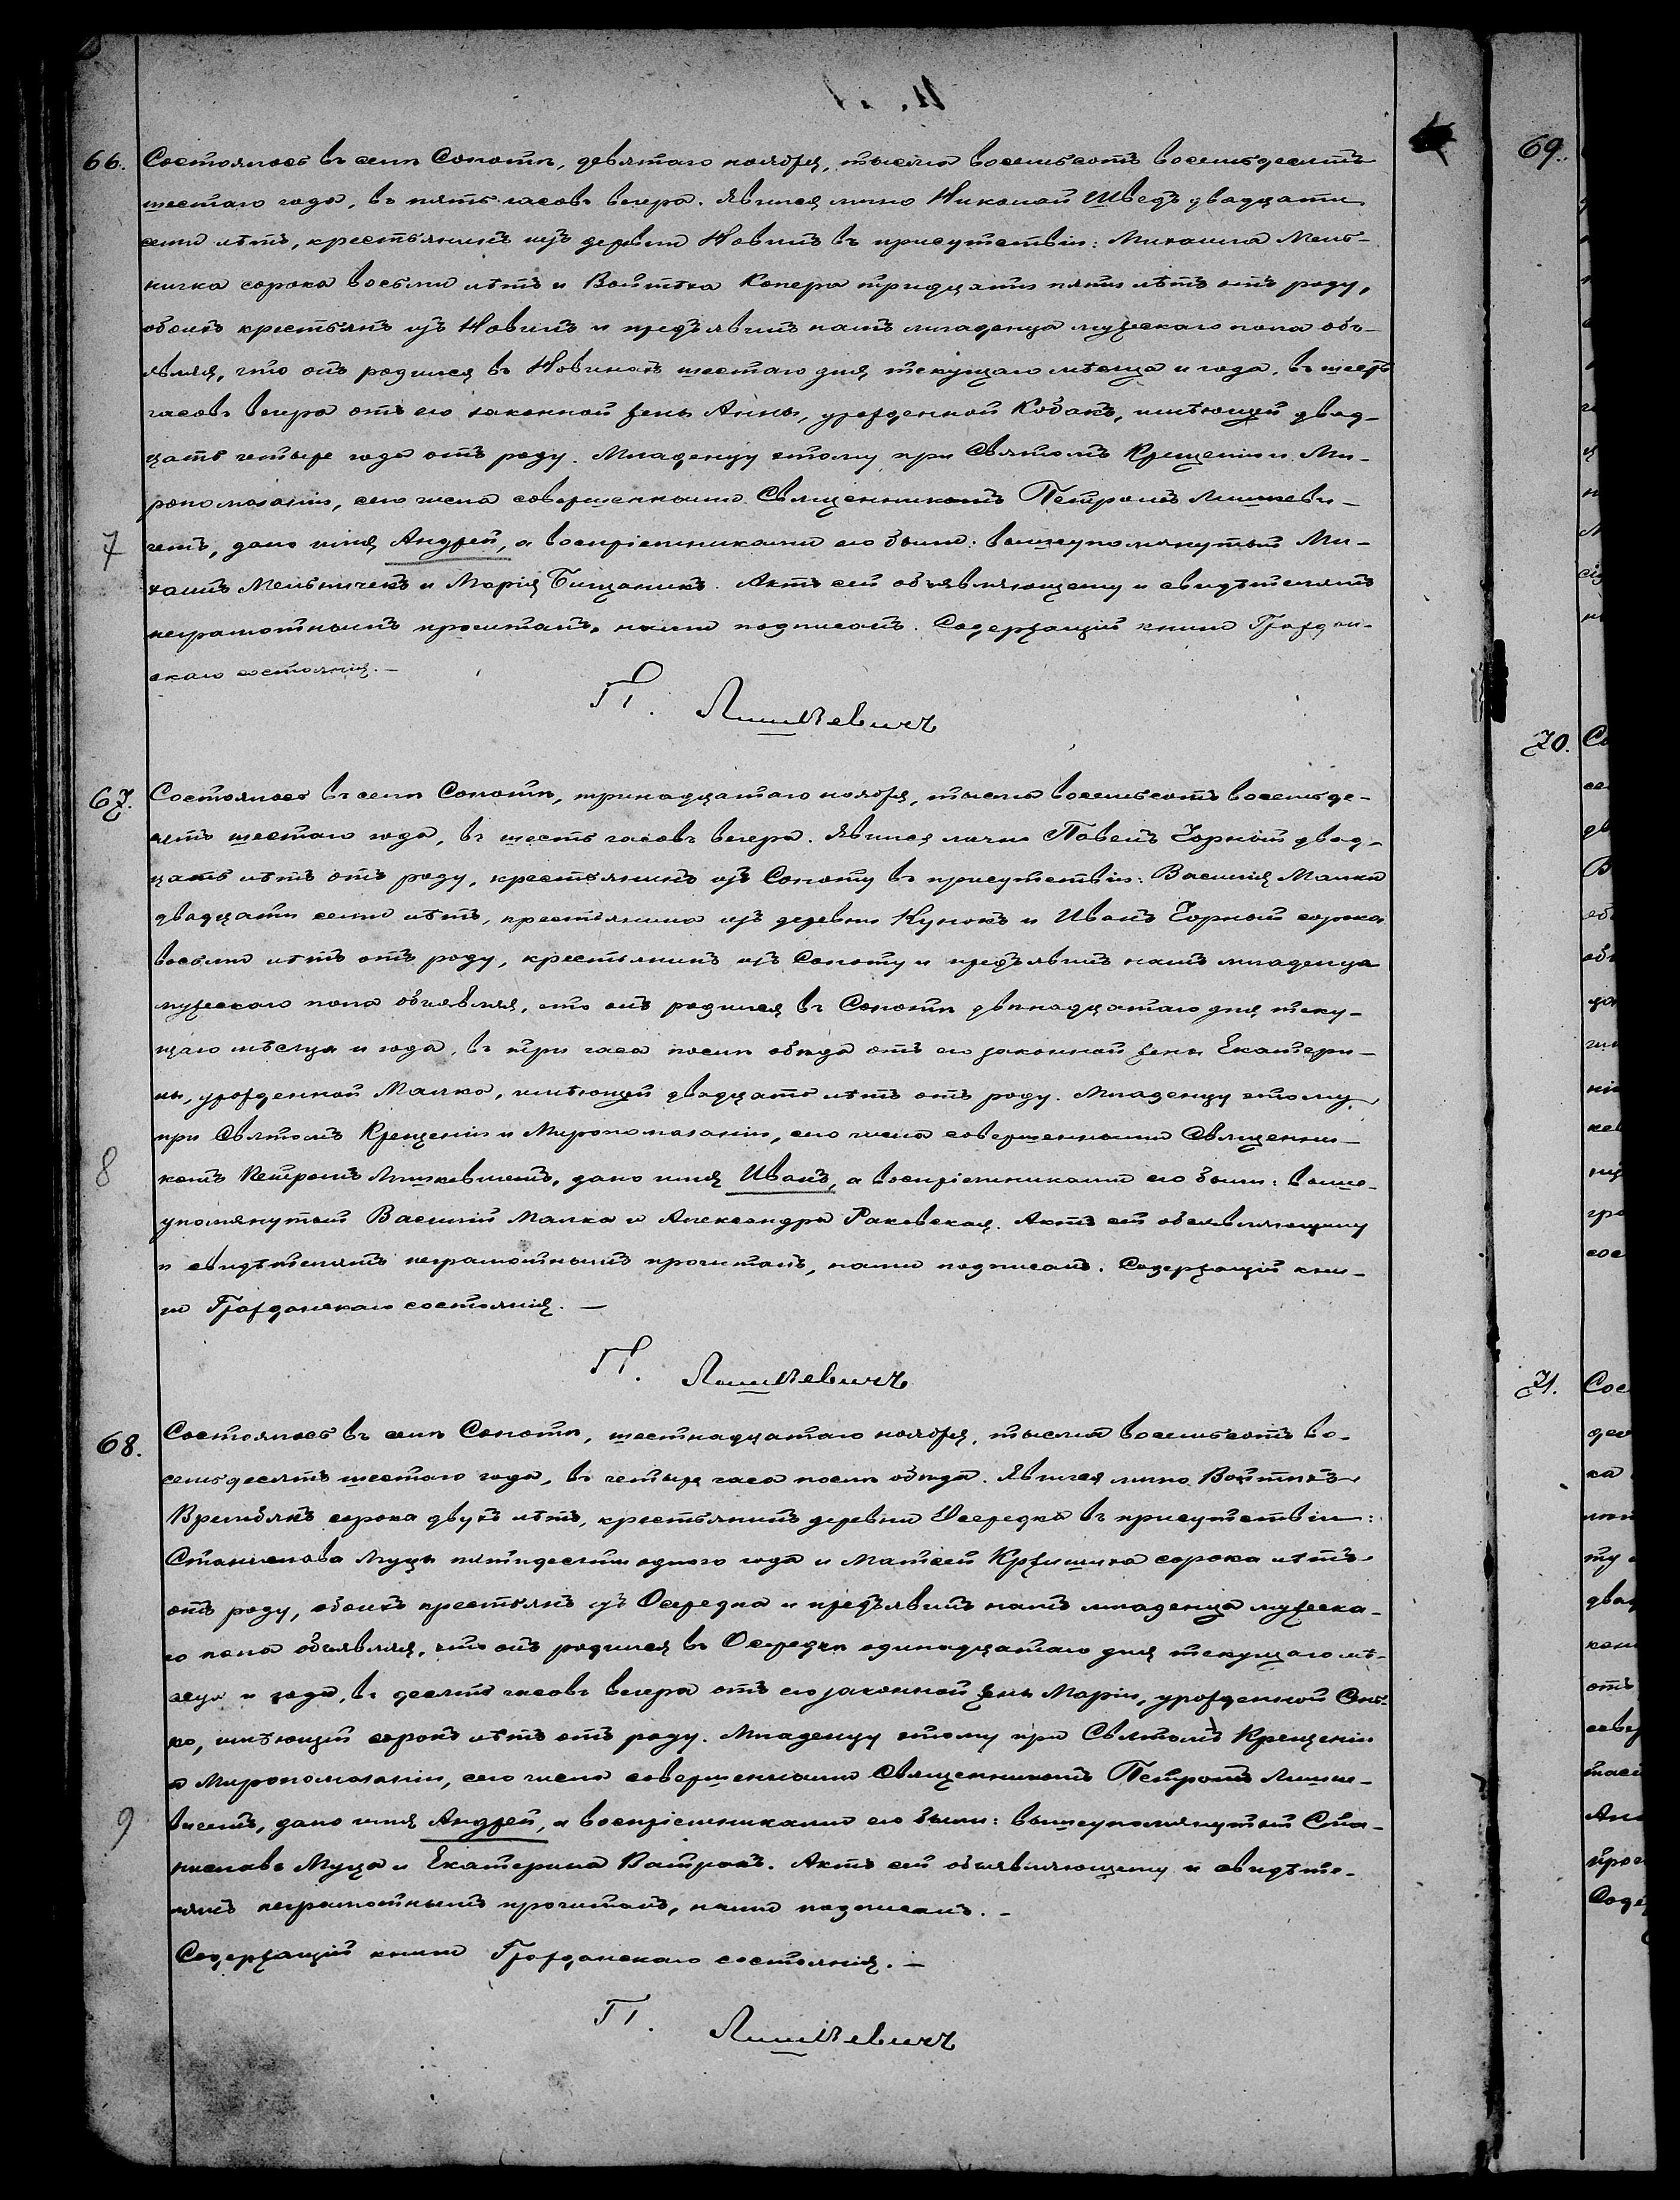 66. Состоялось въ селѣ Сопотѣ, девятаго ноября, тысяча восемьсотъ восемьдесятъ
шестаго года, въ пять часовъ вечера. Явился лично Николай Шведъ двадцати
семи лѣтъ, крестьянинъ изъ деревни Новинъ въ присутствіи: Михаила Мель-
ничка сорока восьми лѣтъ и Войтѣха Копера тридцати пяти лѣтъ отъ роду,
обоихъ крестьянъ изъ Новинъ и предъявилъ намъ младенца мужескаго пола объ-
являя, что онъ родился въ Новинахъ шестаго дня текущаго мѣсяца и года, въ шесть
часовъ вечера отъ его законной жены Анны, урожденной Кобакъ, имѣющей двад-
цать четыре года отъ роду. Младенцу этому при Святомъ Крещеніи и Ми-
ропомазаніи, сего числа совершенными Священникомъ Петромъ Лишкеви-
7 чемъ, дано имя Андрей, а воспріемниками его были: вышеупомянутый Ми-
хаилъ Мельничекъ и Марія Бищаникъ. Актъ сей объявляющему и свидѣтелямъ
неграмотнымъ прочитанъ, нами подписанъ. Содержащій книги Граждан-
скаго состоянія. —
П. Лишкевичъ
67. Состоялось въ селѣ Сопотѣ, тринадцатаго ноября, тысяча восемьсотъ восемьде-
сятъ шестаго года, въ шесть часовъ вечера. Явился лично Павелъ Чорный двад-
цать лѣтъ отъ роду, крестьянинъ изъ Сопоту въ присутствіи: Василія Малки
двадцати семи лѣтъ, крестьянина изъ деревни Кунокъ и Иванъ Чорный сорока
восьми лѣтъ отъ роду, крестьянинъ изъ Сопоту и предъявилъ намъ младенца
мужескаго пола объявляя, что онъ родился въ Сопотѣ двѣнадцатаго дня теку-
щаго мѣсяца и года, въ три часа послѣ обѣда отъ его законной жены Екатери-
ны, урожденной Малка, имѣющей двадцать лѣтъ отъ роду. Младенцу этому
при Святомъ Крещеніи и Миропомазаніи, сего числа совершенными Священни-
8 комъ Петромъ Лишкевичемъ, дано имя Иванъ, а воспріемниками его были: выше-
упомянутый Василій Малка и Александра Раковская. Актъ сей объявляющему
и свидѣтелямъ неграмотнымъ прочитанъ, нами подписанъ. Содержащій кни-
ги Гражданскаго состоянія. —
П. Лишкевичъ
68. Состоялось въ селѣ Сопотѣ, шестнадцатаго ноября, тысяча восемьсотъ во-
семьдесятъ шестаго года, въ четыре часа послѣ обѣда. Явился лично Войтѣхъ
Врембякъ сорока двухъ лѣтъ, крестьянинъ деревни Осередка въ присутствіи:
Станислава Муцы пятидесяти одного года и Матвей Кржишка сорока лѣтъ
отъ роду, обоихъ крестьянъ изъ Осередка и предъявилъ намъ младенца мужеска-
го пола объявляя, что онъ родился въ Осередкѣ одинадцатаго дня текущаго мѣ-
сяца и года, въ десять часовъ вечера отъ его законной жены Маріи, урожденной
имѣющей сорокъ лѣтъ отъ роду. Младенцу этому при Святомъ Крещеніи
и Миропомазаніи, сего числа совершенными Священникомъ Петромъ Лишке-
9 вичемъ, дано имя Андрей, а воспріемниками его были: вышеупомянутый Ста-
ниславъ Муца и Екатерина Ватракъ. Актъ сей объявляющему и свидѣте-
лямъ неграмотнымъ прочитанъ, нами подписанъ. —
Содержащій книги Гражданскаго состоянія. —
П. Лишкевичъ
69.
70.
71.